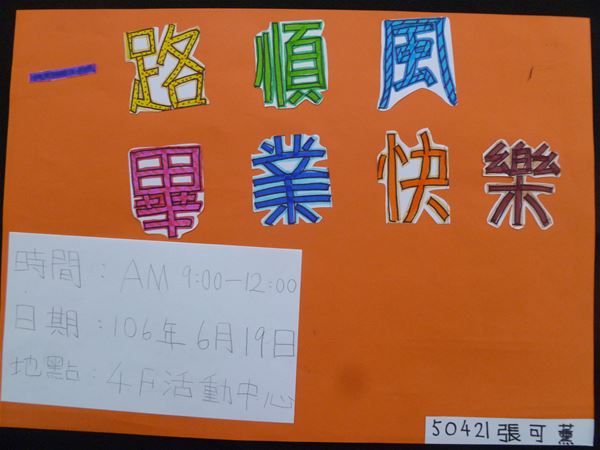 一路順風
畢業快樂
時間：AM 9:00-12:00
日期：106年6月19日
地點：4F活動中心
50421張可薰